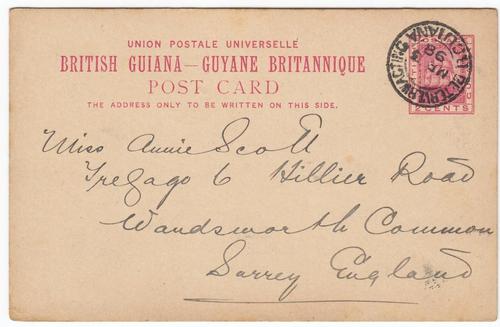 UNION POSTALE UNIVERSELLE
BRITISH GUIANA—GUYANE BRITANNIQUE
POST CARD
THE ADDRESS ONLY TO BE WRITTEN ON THIS SIDE.
98
CENTS
Miss Annie Scott
Tregago 6 Hillier Road
Wandsworth Common
Surrey England